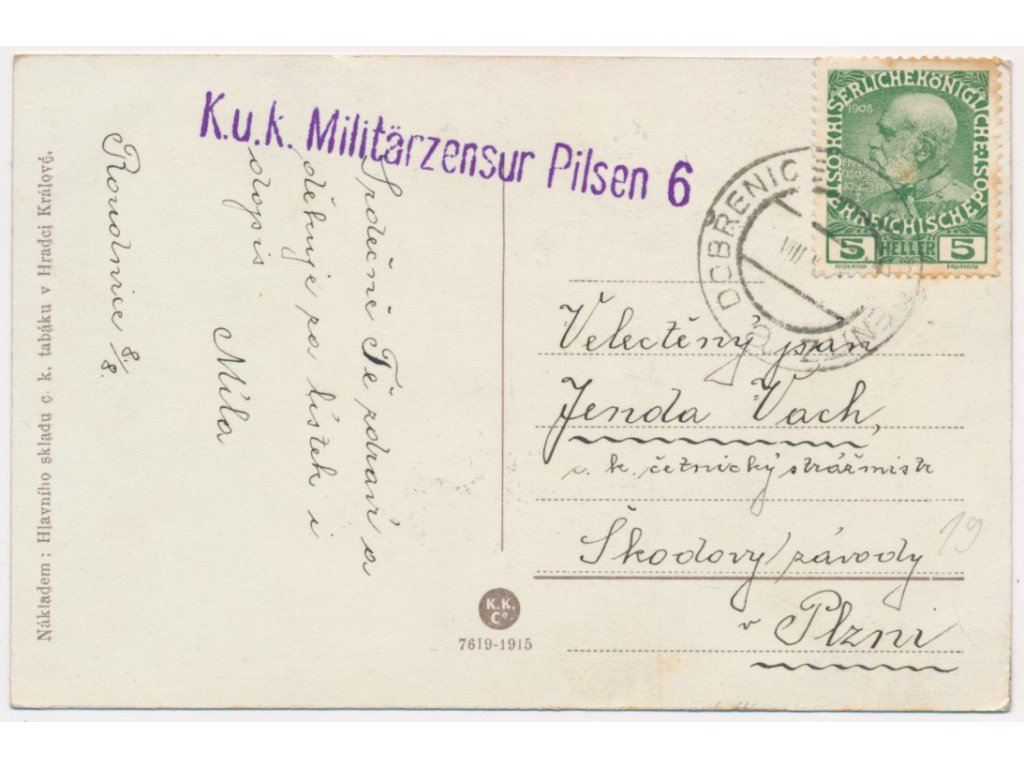 K.u.k. Militärzensur Pilsen 6
KAISERLICHEKÖNIGLICHE
ÖSTERREICHISCHE POST
1908
5 HELLER 5
DOBŘENIC
Srdečně Tě zdraví a
děkuje za lístek i
dopis
Míla
Roudnice 8./8.
Velectěný pán
Jenda Vach,
c. k. četnický strážmistr
Škodovy závody
v Plzni
19
Nákladem : Hlavního skladu c. k. tabáku v Hradci Králové.
K.K.
Co
7619-1915